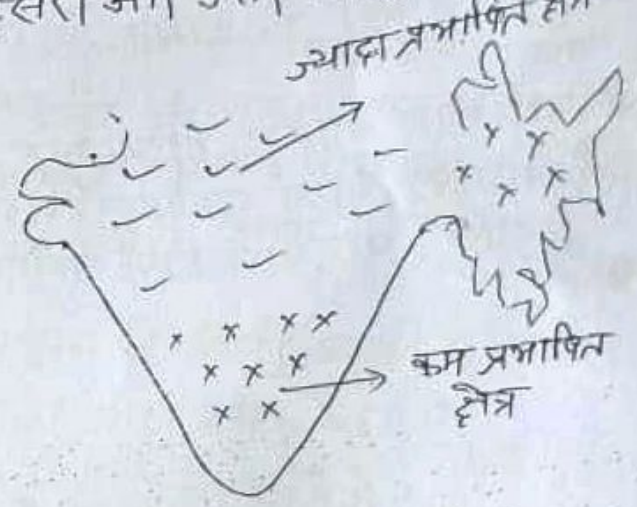 ज्यादा प्रभावित क्षेत्र
कम प्रभावित
क्षेत्र